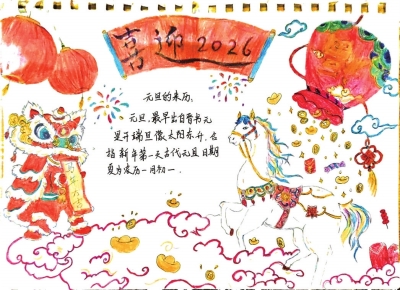 喜迎2026
元旦的来历。
元旦,最早出自晋书元
旦开瑞旦像太阳东升,右
指新年第一天古代元旦日期
夏为农历一月初一